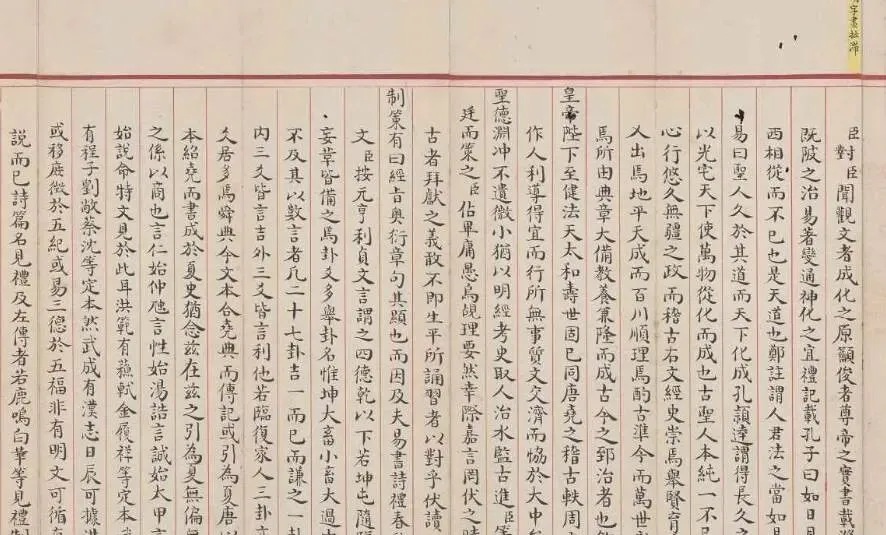 臣對臣聞觀文者成化之原籲俊者尊帝之實書載
既陂之治易著變通神化之宜禮記載孔子曰如日
西相從而不已也是天道也鄭註謂人君法之當如
易曰聖人久於其道而天下化成孔穎達謂得長久之
以光宅天下使萬物從化而成也古聖人本純一不已
心行悠久無疆之政而稽古右文經史崇焉舉賢育
乂出焉地平天成而百川順理焉酌古準今而萬世
焉所由典章大備教養兼隆而成古今之郅治者也
皇帝陛下至健法天太和壽世固已同唐堯之稽古軼周
作人利導得宜而行所無事質文交濟而協於大中
聖德淵沖不遺微小猶以明經考史取人治水監古進臣等
廷而策之臣佔畢庸愚烏識理要然幸際嘉言罔伏之時
古者拜獻之義敢不即生平所誦習者以對乎伏讀
制策有曰經旨奧衍章句其顯也而因及夫易書詩禮春
文臣按元亨利貞文言謂之四德乾以下若坤屯隨臨
妄革皆備之焉卦爻多舉卦名惟坤大畜小畜大過
不及其以數言者凡二十七卦吉一而已而謙之一卦
內三爻皆言吉外三爻皆言利他若臨復家人三卦
爻居多焉舜典今文本合堯典而傳記或引為夏唐
本紹堯而書成於夏史猶念茲在茲之引為夏無偏
之係以商也言仁始仲虺言性始湯誥言誠始太甲言
始說命特文見於此耳洪範有蘇軾金履祥等定本
有程子劉敞蔡沈等定本然武成有漢志日辰可據洪
或移庶徵於五紀或易三德於五福非有明文可循
說而已詩篇名見禮及左傳者若鹿鳴白華等見禮